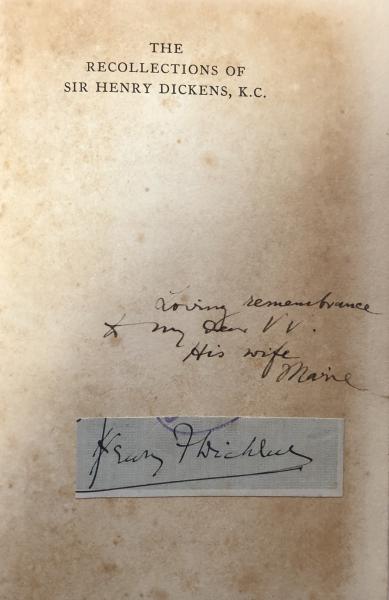 THE
RECOLLECTIONS OF
SIR HENRY DICKENS, K.C.
Loving remembrance
to my dear V V.
His wife
Marie
Henry F Dickens